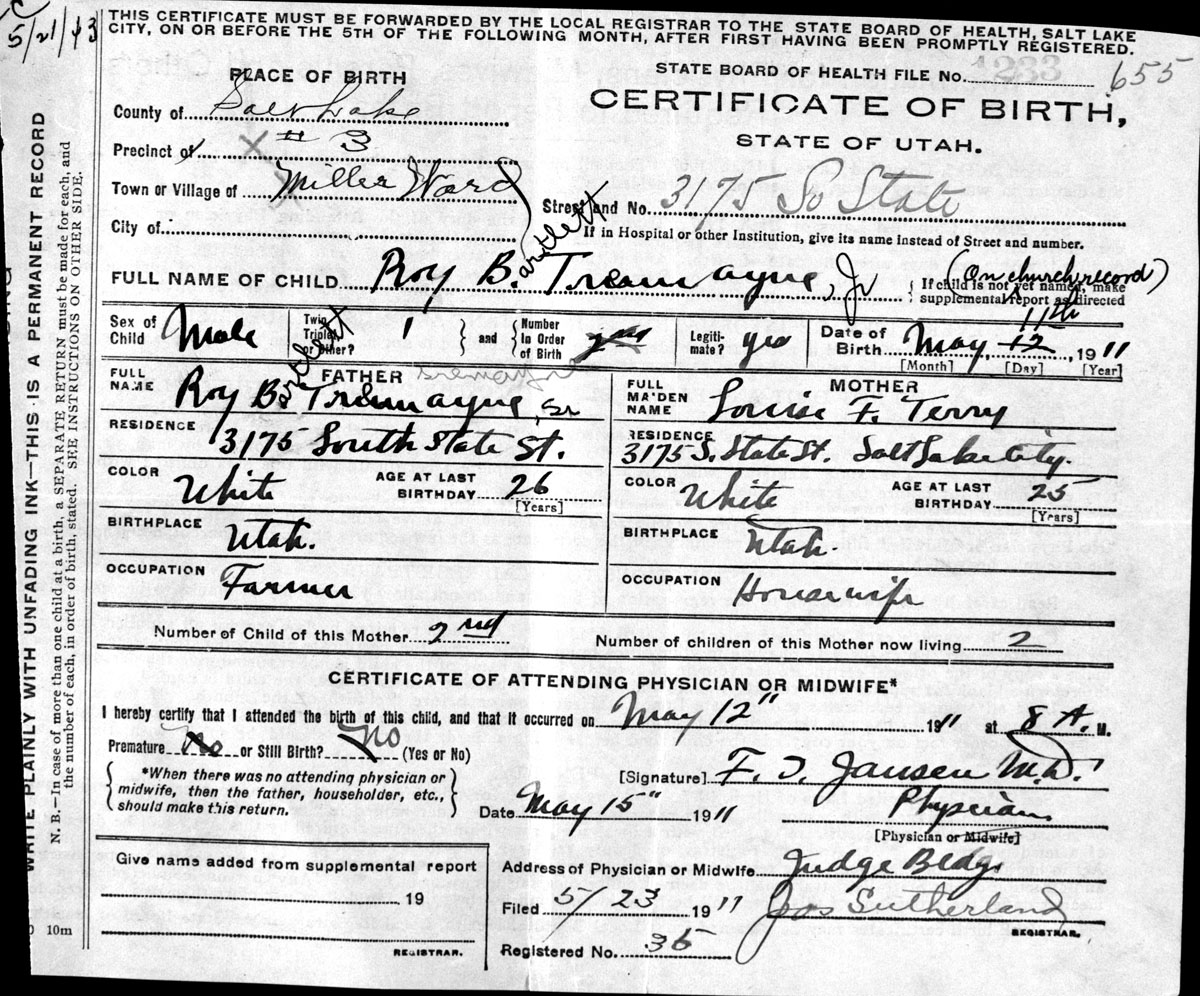 5/21/43
THIS CERTIFICATE MUST BE FORWARDED BY THE LOCAL REGISTRAR TO THE STATE BOARD OF HEALTH, SALT LAKE
CITY, ON OR BEFORE THE 5TH OF THE FOLLOWING MONTH, AFTER FIRST HAVING BEEN PROMPTLY REGISTERED.
WRITE PLAINLY WITH UNFADING INK—THIS IS A PERMANENT RECORD
N. B.—In case of more than one child at a birth, a SEPARATE RETURN must be made for each, and
the number of each, in order of birth, stated. SEE INSTRUCTIONS ON OTHER SIDE.
10m
PLACE OF BIRTH
County of Salt Lake
Precinct of # 3
Town or Village of Miller Ward
City of
STATE BOARD OF HEALTH FILE No. 1233 655
CERTIFICATE OF BIRTH,
STATE OF UTAH.
Street and No. 3175 So State
If in Hospital or other Institution, give its name instead of Street and number.
FULL NAME OF CHILD Roy Bartlett Tremayne, Jr
(On church record)
If child is not yet named, make
supplemental report as directed
Sex of Child Male
Twin Triplet, or Other? 1
and
Number In Order of Birth
Legiti-mate? yes
Date of Birth May, 12 11th, 1911
[Month] [Day] [Year]
FATHER
FULL NAME Roy Bartlett Tremayne, Sr
RESIDENCE 3175 South State St.
COLOR White AGE AT LAST BIRTHDAY 26
[Years]
BIRTHPLACE Utah.
OCCUPATION Farmer
MOTHER
FULL MAIDEN NAME Louise F. Terry
RESIDENCE 3175 S. State St. Salt Lake City.
COLOR White AGE AT LAST BIRTHDAY 25
[Years]
BIRTHPLACE Utah.
OCCUPATION Housewife
Number of Child of this Mother 2nd Number of children of this Mother now living 2
CERTIFICATE OF ATTENDING PHYSICIAN OR MIDWIFE*
I hereby certify that I attended the birth of this child, and that it occurred on May 12" 1911 at 8 A. M.
Premature No or Still Birth? No (Yes or No)
*When there was no attending physician or
midwife, then the father, householder, etc.,
should make this return.
[Signature] F. J. Jansen M.D.
Date May 15" 1911 Physician
[Physician or Midwife]
Give name added from supplemental report
19
REGISTRAR.
Address of Physician or Midwife Judge Bldg.
Filed 5/23 1911 Jos Sutherland
REGISTRAR.
Registered No. 35